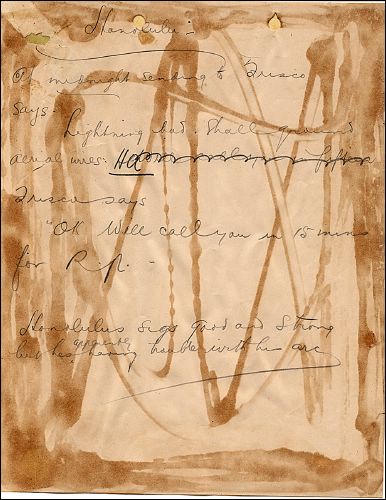 Honolulu:-
At midnight sending to Frisco
says
Lightning bad. Shall ground
aerial wires.
Frisco says
"OK Will call you in 15 mins
for R.N. -
Honolulus sigs good and strong
but hes apparently having trouble with his arc